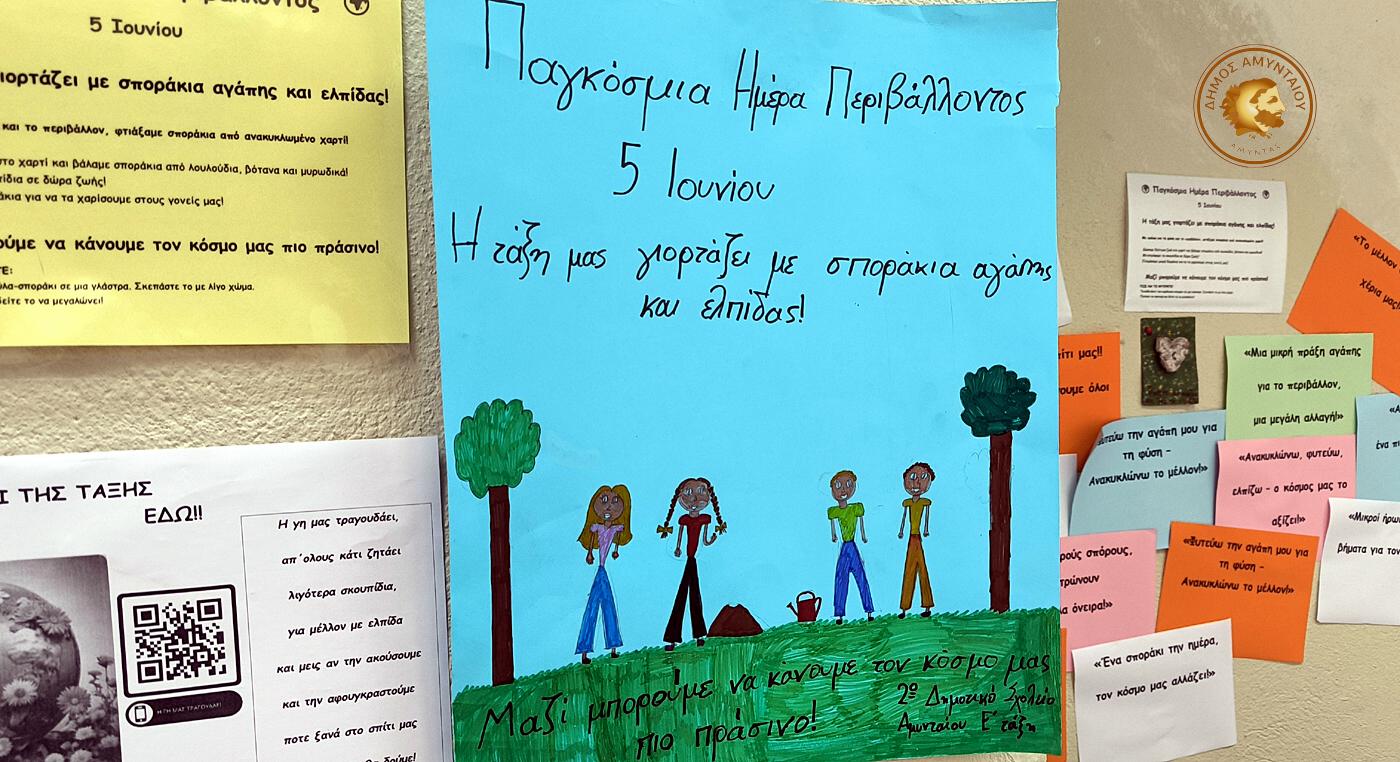 5 Ιουνίου
με σποράκια αγάπης και ελπίδας!
και το περιβάλλον, φτιάξαμε σποράκια από ανακυκλωμένο χαρτί!
χαρτί και βάλαμε σποράκια από λουλούδια, βότανα και μυρωδικά!
σε δώρα ζωής!
για να τα χαρίσουμε στους γονείς μας!
να κάνουμε τον κόσμο μας πιο πράσινο!
σε μια γλάστρα. Σκεπάστε το με λίγο χώμα.
το να μεγαλώνει!
ΤΗΣ ΤΑΞΗΣ
ΕΔΩ!!
Η γη μας τραγουδάει,
απ΄ολους κάτι ζητάει
λιγότερα σκουπίδια,
για μέλλον με ελπίδα
και μεις αν την ακούσουμε
και την αφουγκραστούμε
ποτε ξανά στο σπίτι μας
Η ΓΗ ΜΑΣ ΤΡΑΓΟΥΔΑΕΙ!
Παγκόσμια Ημέρα Περιβάλλοντος
5 Ιουνίου
Η τάξη μας γιορτάζει με σποράκια αγάπης
και ελπίδας!
Μαζί μπορούμε να κάνουμε τον κόσμο μας
πιο πράσινο!
2º Δημοτικό Σχολείο
Αμυνταίου Ε΄ τάξη
ΔΗΜΟΣ ΑΜΥΝΤΑΙΟΥ
ΑΜΥΝΤΑΣ
Παγκόσμια Ημέρα Περιβάλλοντος
5 Ιουνίου
Η τάξη μας γιορτάζει με σποράκια αγάπης και ελπίδας!
Μαζί μπορούμε να κάνουμε τον κόσμο μας πιο πράσινο!
«Το μέλλον
χέρια μας!
μας!!
όλοι
«Μια μικρή πράξη αγάπης
για το περιβάλλον,
μια μεγάλη αλλαγή!»
«Φυτεύω την αγάπη μου για
τη φύση –
Ανακυκλώνω το μέλλον!»
«Ανακυκλώνω, φυτεύω,
ελπίζω – ο κόσμος μας το
αξίζει!»
«Μικροί
βήματα για τον
σπόρους,
όνειρα!»
«Φυτεύω την αγάπη μου για
τη φύση –
Ανακυκλώνω το μέλλον!»
«Ένα σποράκι την ημέρα,
τον κόσμο μας αλλάζει!»